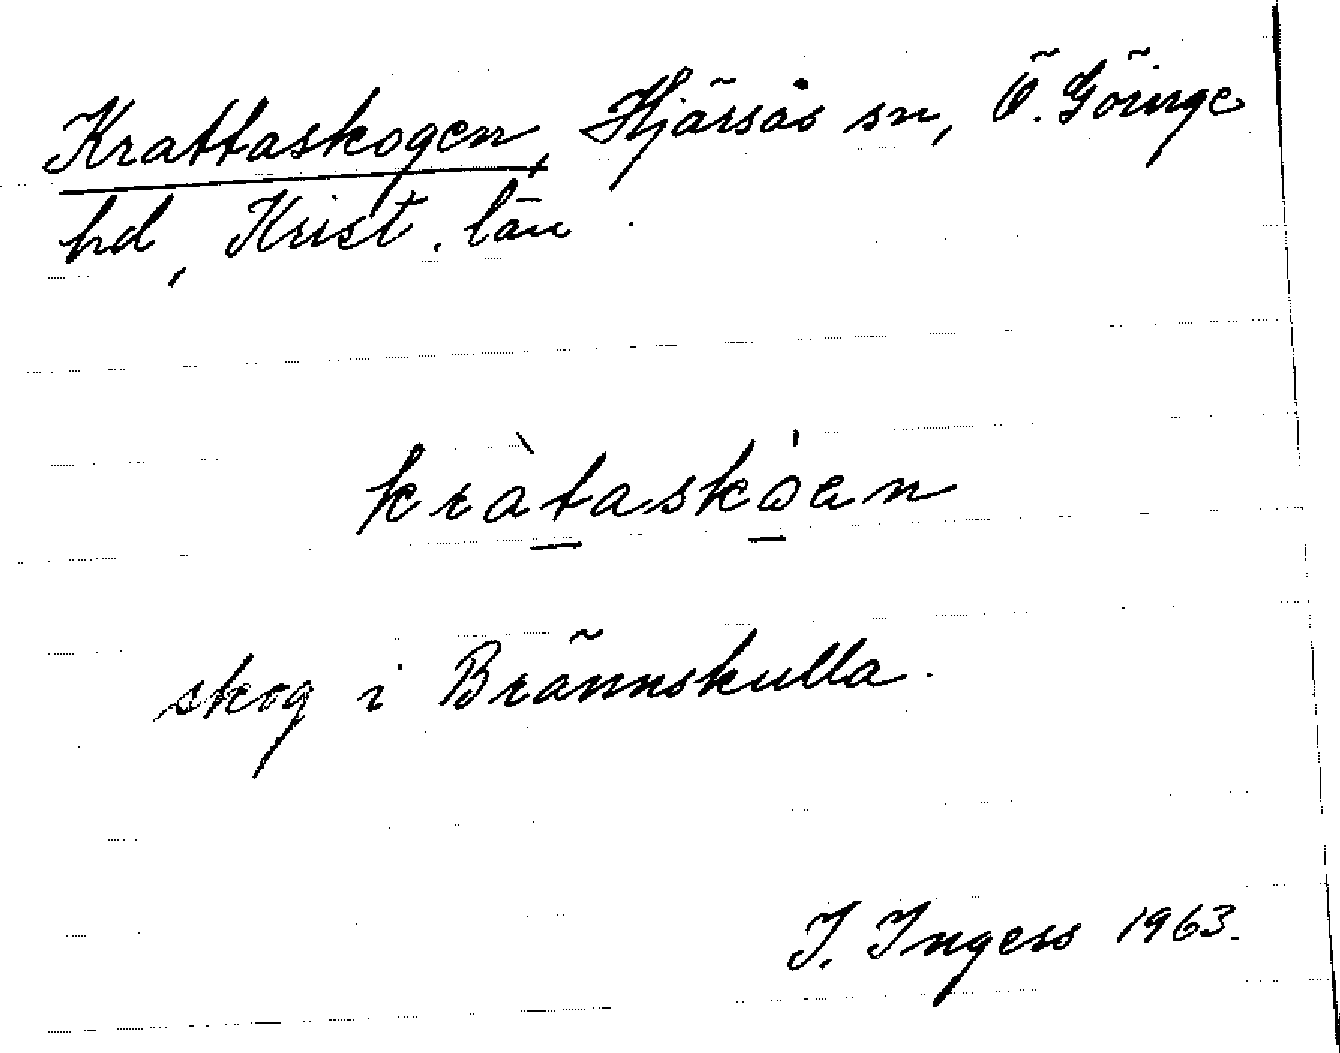 Krattaskogen, Hjärsås sn, Ö. Göinge
hd, Krist. län.
kràtaskóen
skog i Brännskulla.
I. Ingers 1963.